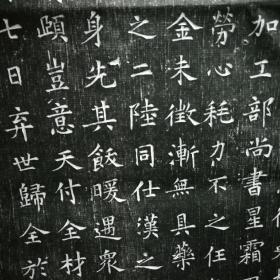 加工部尚書星霜
勞心耗力不之任
金未徵漸無具藥
之二陸同仕漢之
身先其餒暖遇眾
頤豈意天付全材
七日弃世歸全於